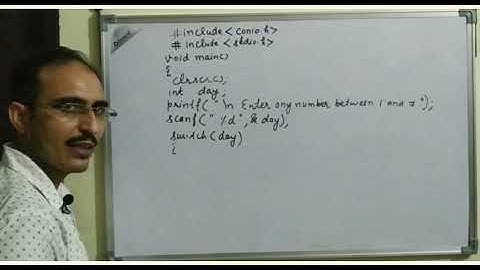 #include<conio.h>
#include<stdio.h>
void main()
{
clrscr();
int day;
printf("\n Enter any number between 1 and 7");
scanf("%d",&day);
switch(day)
{